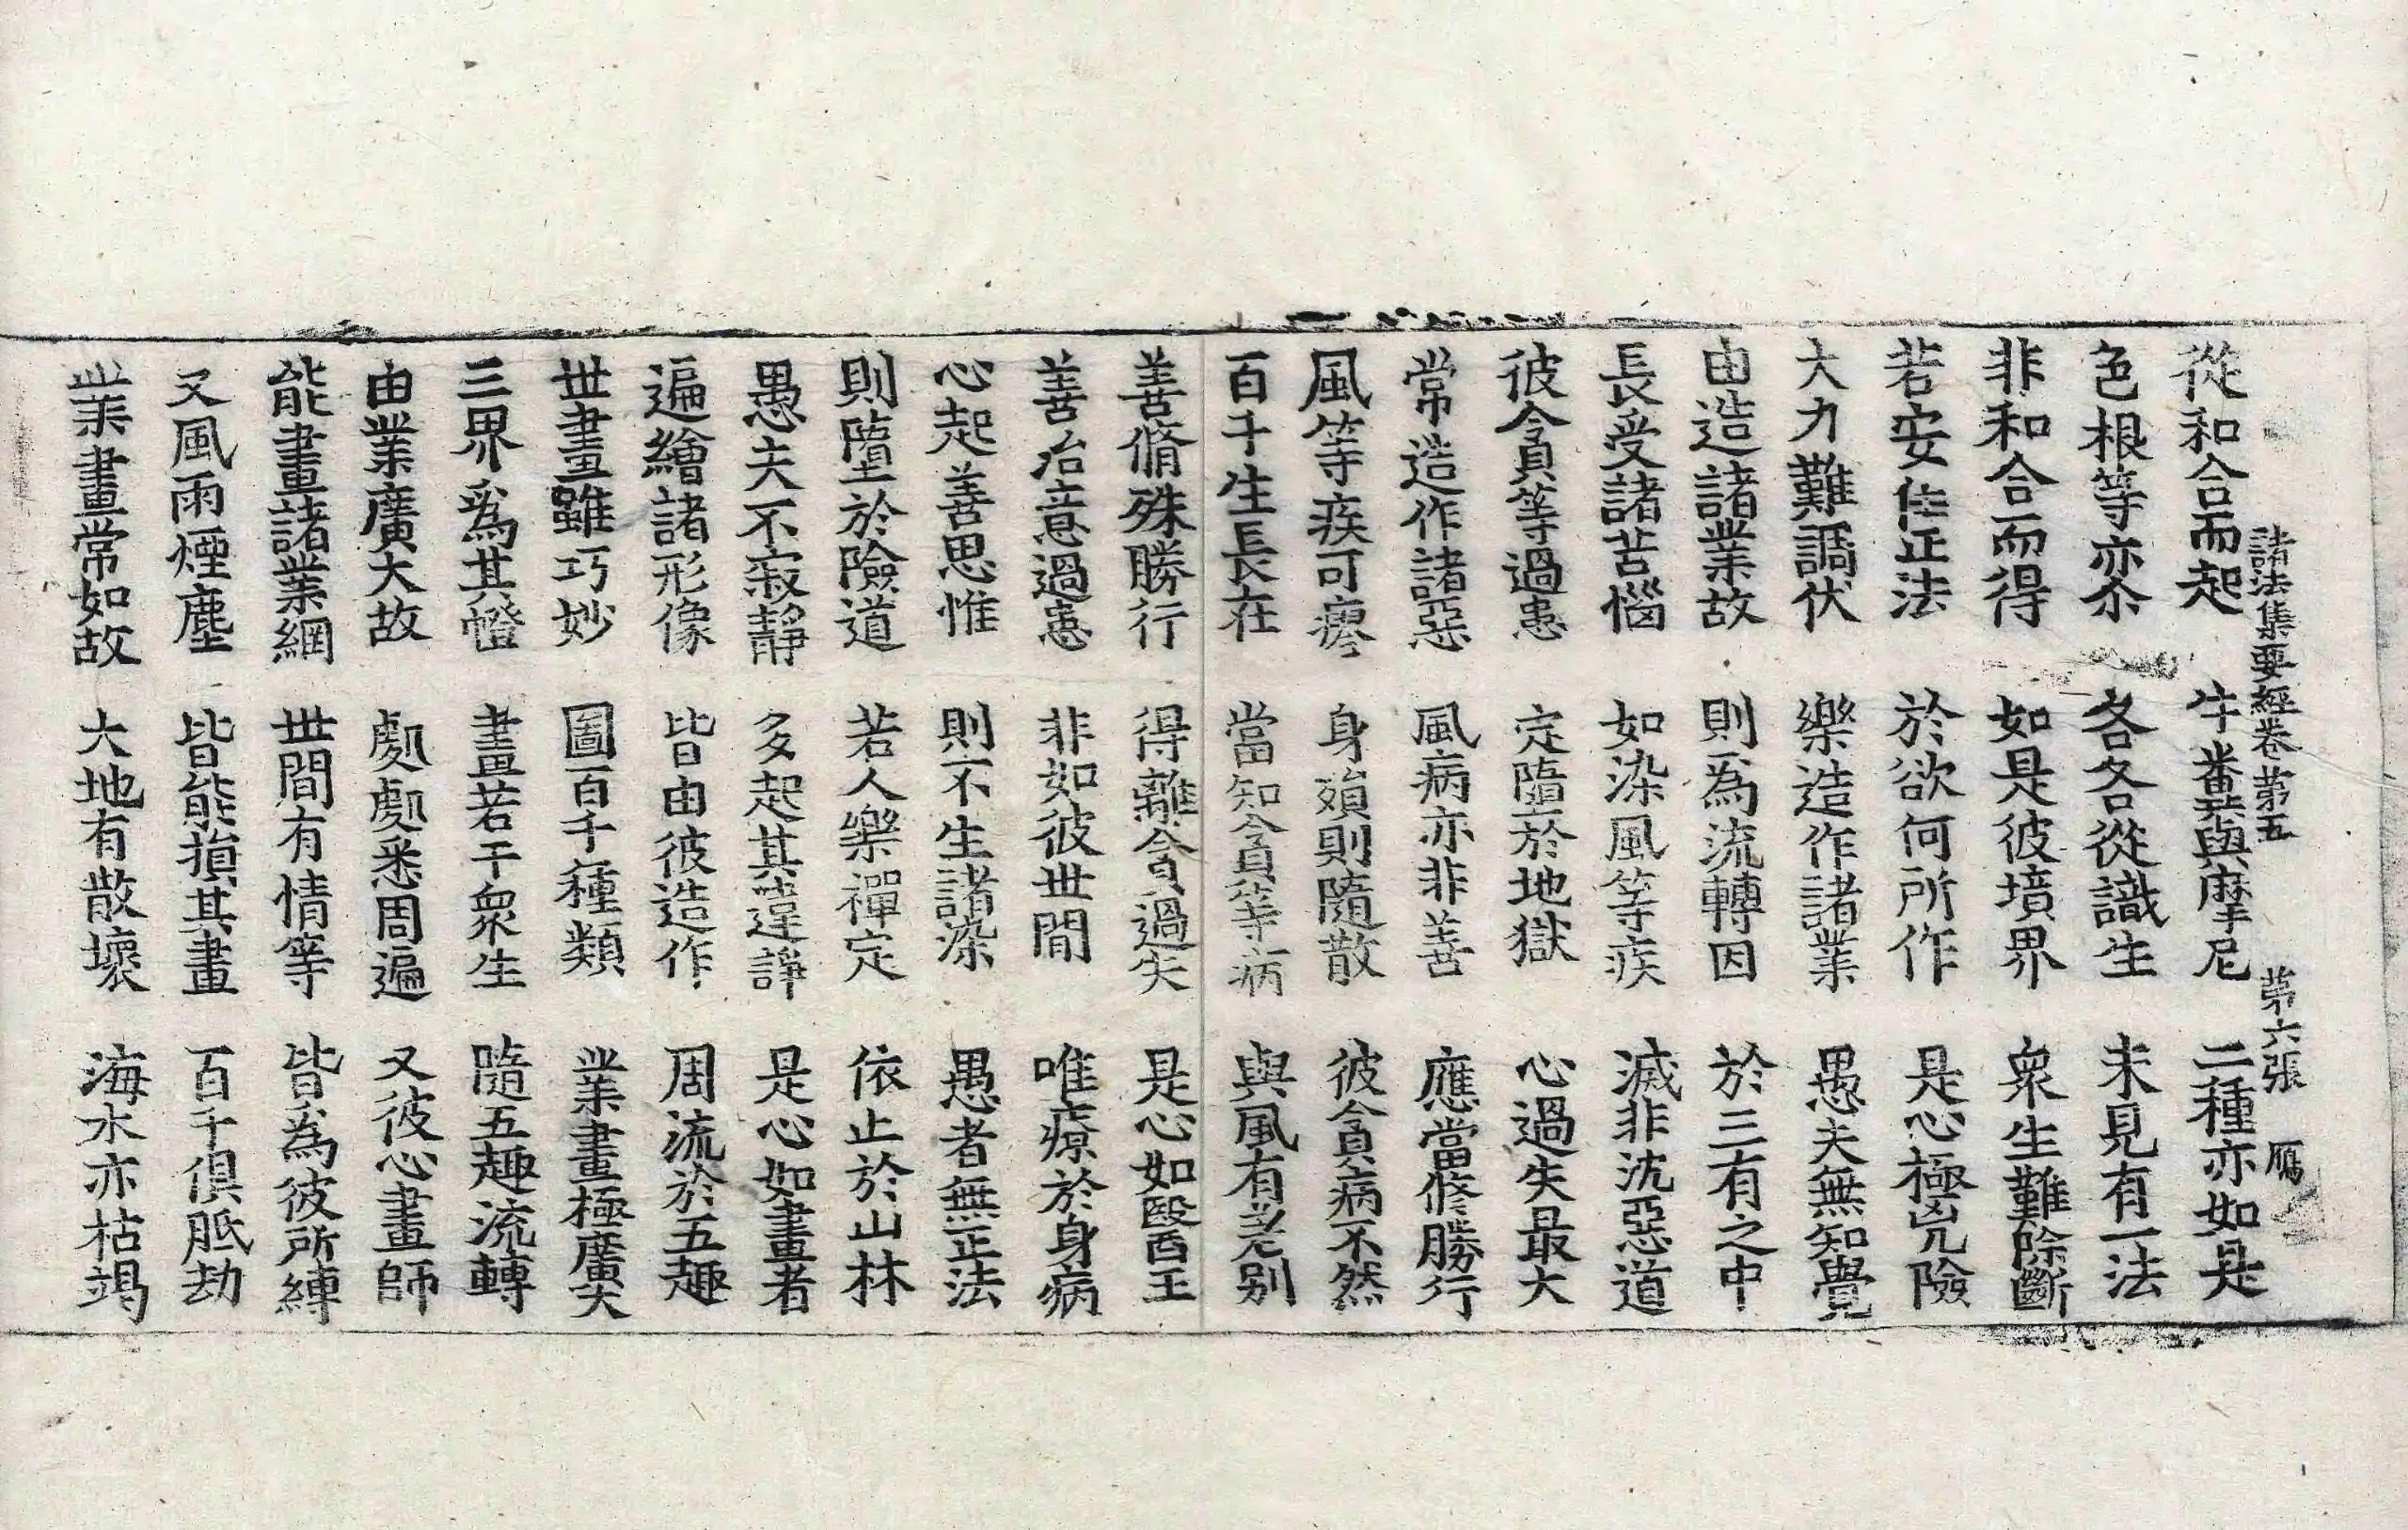 諸法集要經卷第五 第六張 鴈
從和合而起 牛糞與摩尼 二種亦如是
色根等亦尒 各各從識生 未見有一法
非和合而得 如是彼境界 衆生難除斷
若安住正法 於欲何所作 是心極兇險
大力難調伏 樂造作諸業 愚夫無知覺
由造諸業故 則爲流轉因 於三有之中
長受諸苦惱 如染風等疾 滅非沈惡道
彼貪等過患 定墮於地獄 心過失最大
常造作諸惡 風病亦非善 應當修勝行
風等疾可瘳 身殞則隨散 彼貪病不然
百千生長在 當知貪等病 與風有差別
善脩殊勝行 得離貪過失 是心如醫王
善治意過患 非如彼世間 唯療於身病
心起善思惟 則不生諸染 愚者無正法
則墮於險道 若人樂禪定 依止於山林
愚夫不寂靜 多起其違諍 是心如畫者
遍繪諸形像 皆由彼造作 周流於五趣
世畫雖巧妙 圖百千種類 業畫極廣大
三界爲其㡧 畫若干衆生 隨五趣流轉
由業廣大故 處處悉周遍 又彼心畫師
能畫諸業網 世間有情等 皆爲彼所縛
又風雨煙塵 皆能損其畫 百千俱胝劫
業畫常如故 大地有散壞 海水亦枯竭